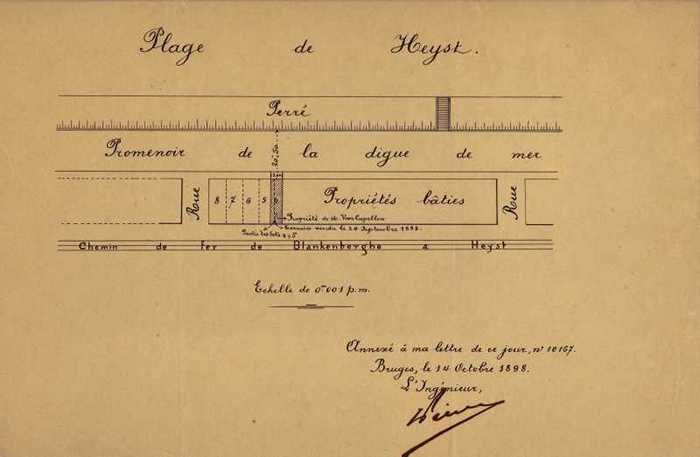 Plage de Heyst.
Perré
20,50
Promenoir de la digue de mer
Rue
8 7 6 5
Propriétés bâties
Rue
Propriété de M. Van Capellen
vendu le 20 Septembre 1898.
Partie des lots 4 et 5
Chemin de Fer de Blankenberghe à Heyst
Echelle de 0m001 p.m.
Annexé à ma lettre de ce jour, n° 10167.
Bruges, le 14 Octobre 1898.
L'Ingénieur,